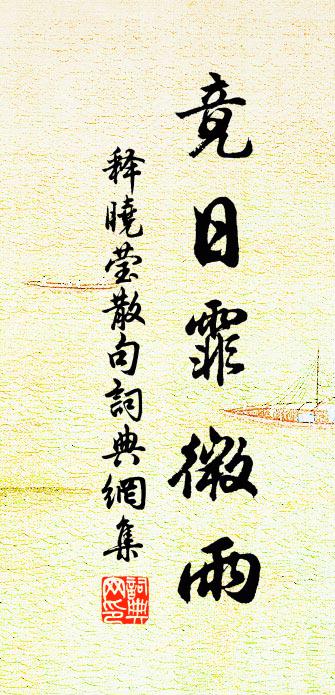 竟日霏微雨
释曉莹散句詞典網集
詞典网印